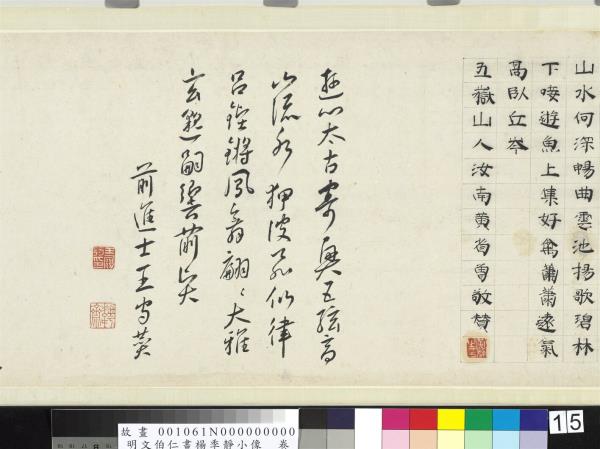 山水何深暢曲雲池揚歌碧林
下唼遊魚上集好禽蕭蕭遠氣
高臥丘岑
五嶽山人汝南黃省曾敬贊
遊心太古寄興五弦高
山流水 似律
呂鏗鏘鳳翕翩〻大雅
玄邈嗣響前
前進士王守
故畫 001061N000000000
明文伯仁畫楊季靜小像 卷
15